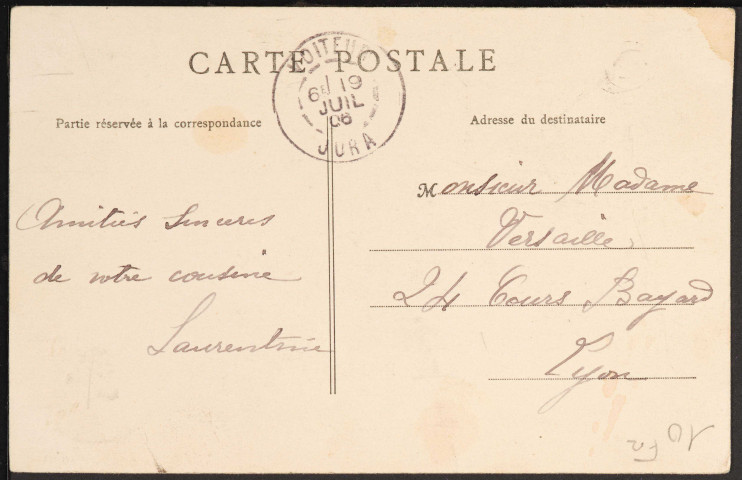 CARTE POSTALE
VOITEUR
6E 19
JUIL
06
JURA
Partie réservée à la correspondance
Amitiés sinceres
de votre cousine
Laurentine
Adresse du destinataire
Monsieur Madame
Versaille
24 Cours Bayard
Lyon
10 Fr